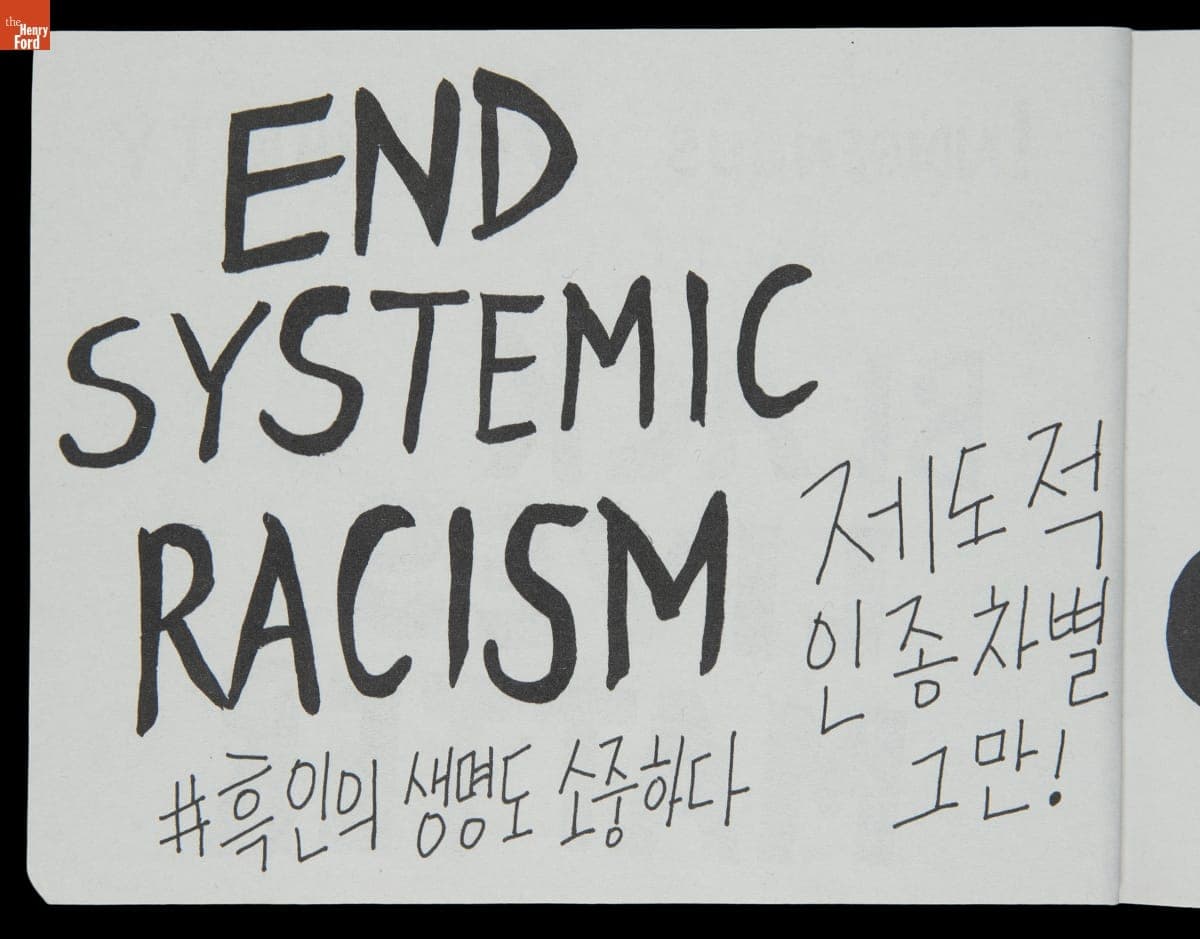 the
Henry
Ford
END
SYSTEMIC
RACISM
#흑인의 생명도 소중하다
제도적
인종차별
그만!